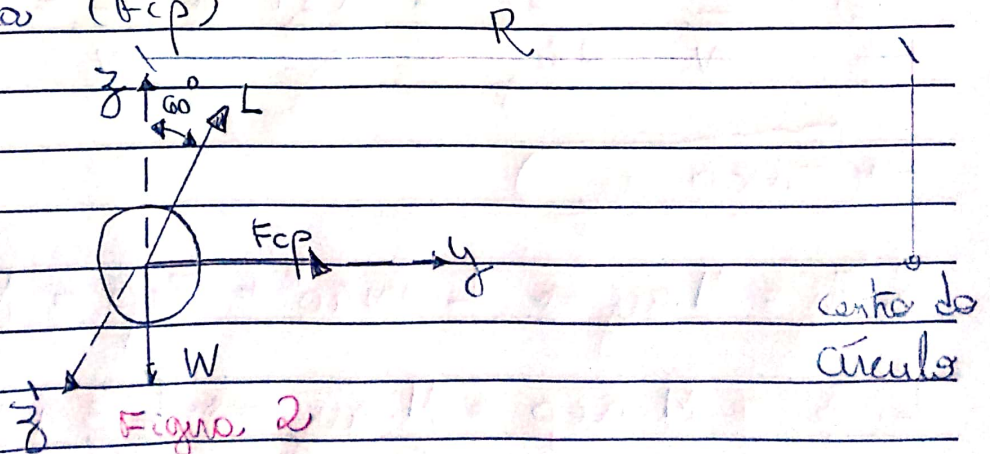 (Fcp)
R
z 60° L
Fcp y
centro do
círculo
W
z
Figura 2